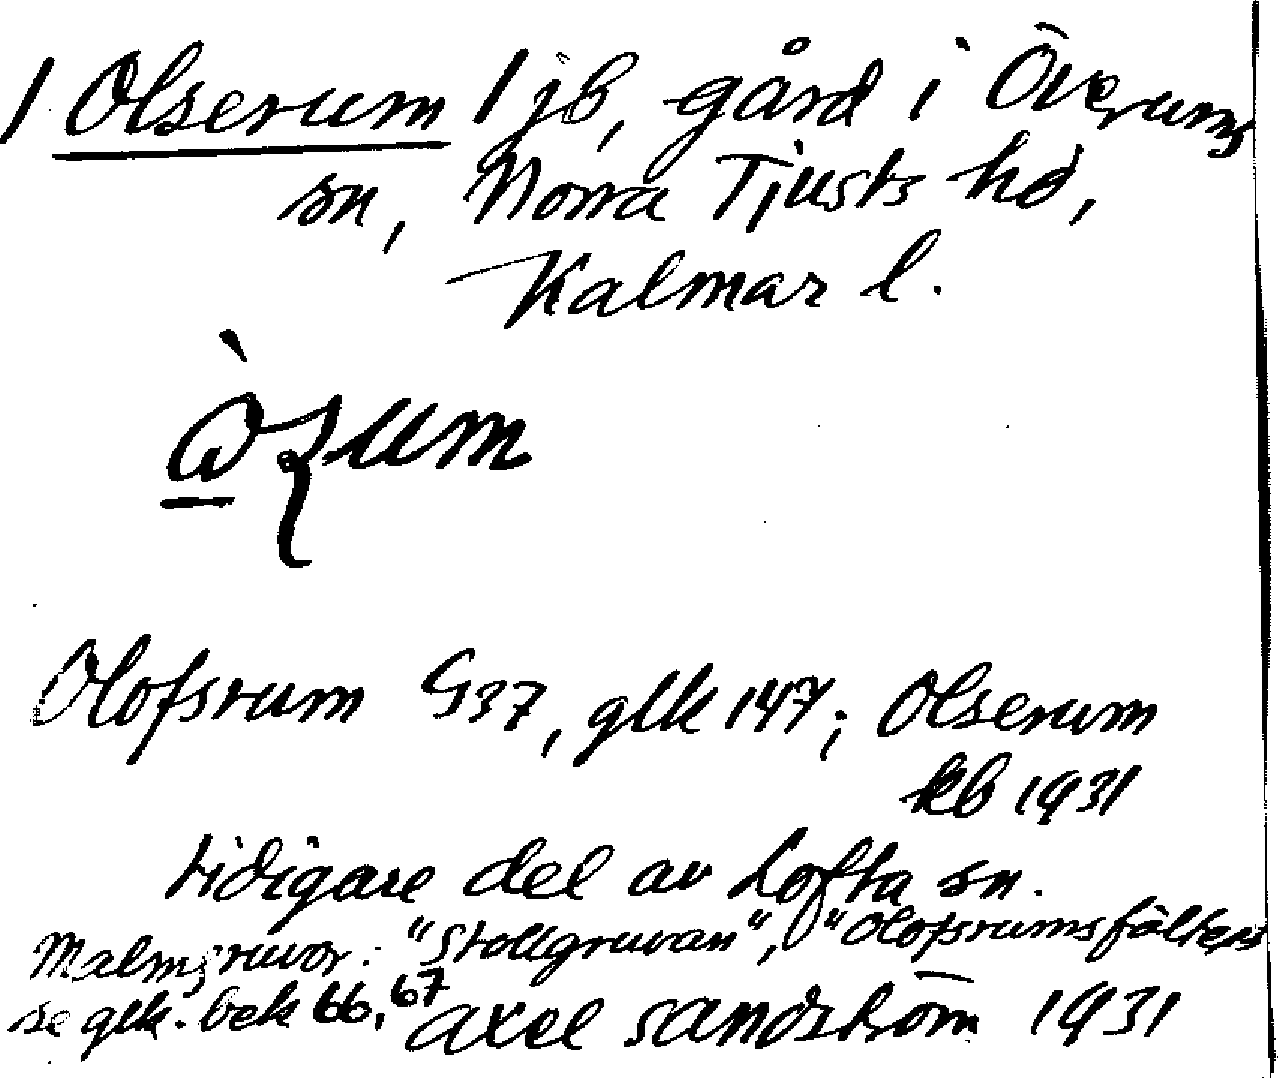 1 Olserum 1 jb, gård i Överums
sn, Norra Tjusts hd,
Kalmar l.
Olofsrum G37, glk 147; Olserum
kb 1931
tidigare del av Lofta sn.
Malmgruvor: "Stollgruvan", "Olofsrumsfälten
se glk. bek 66, 67
Axel Sandström 1931